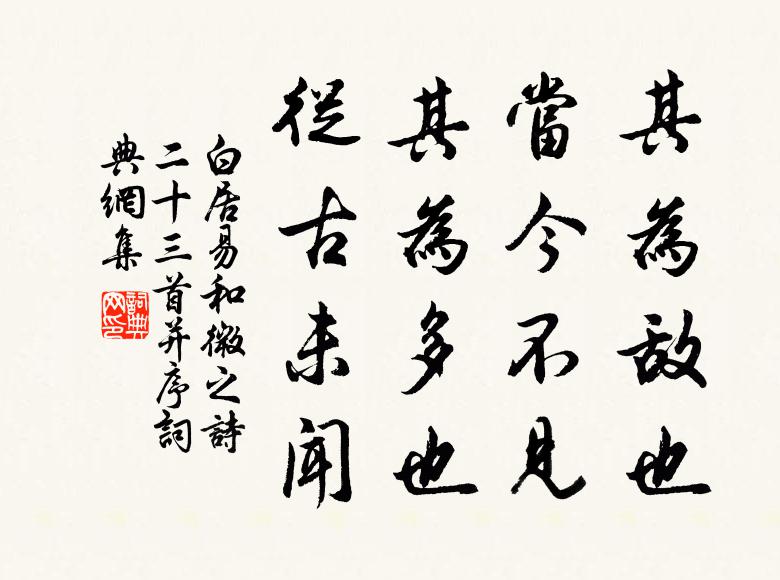 其為敵也
當今不見
其為多也
從古未聞
白居易和微之詩
二十三首并序詞
典網集
詞典网印